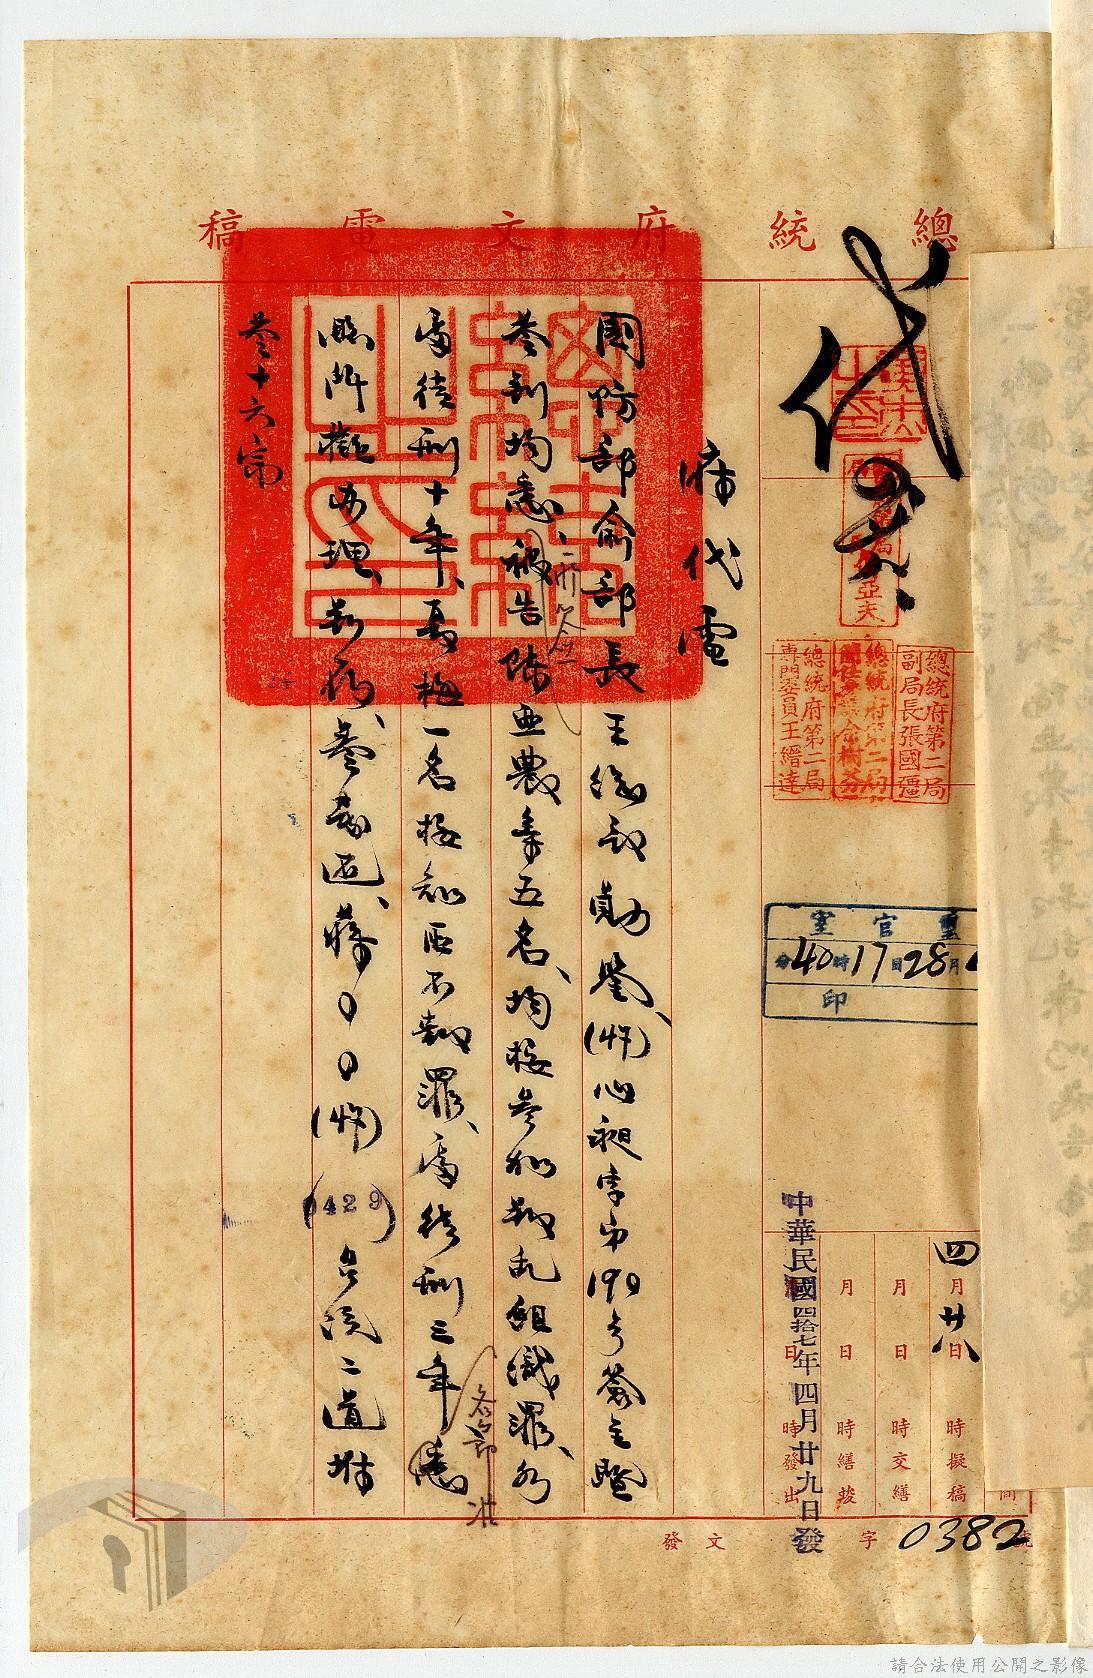 總統府文電稿
代電
總統府第二局
副局長張國疆
總統府第二局
總統府第二局
專門委員王縉達
璽官室
月28日17時40分
印
四月廿八日 時擬稿
月 日 時交繕
月 日 時繕竣
日 時發出
中華民國四拾七年四月廿九日發
府代電
國防部俞部長王總長勛鑒、(47)心昶字第190号簽呈暨
卷判均悉、所簽被告陳亞農等五名、均按參加叛亂組織罪、各
處徒刑十年、
一名按知匪不報罪、處徒刑三年各節准
照所擬辦理、
蔣○○(47)
(429)台統二道
卷十六宗
發文 字 0382 號
請合法使用公開之影像